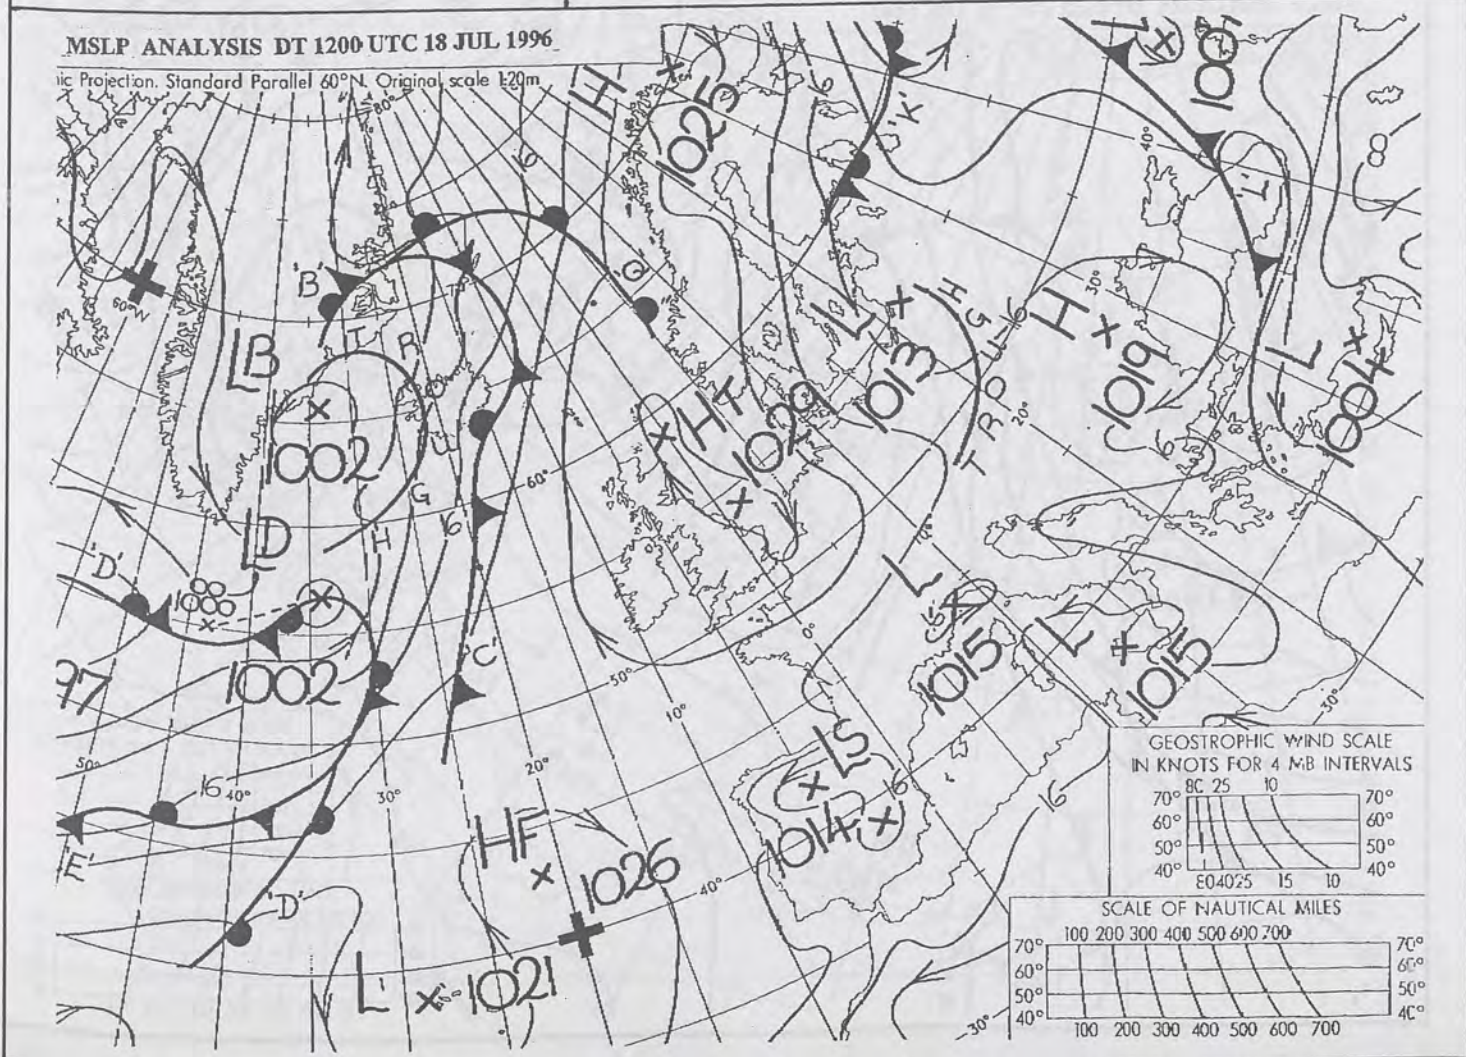 MSLP ANALYSIS DT 1200 UTC 18 JUL 1996
ic Projection. Standard Parallel 60°N. Original scale 1:20m
80°
H
1025
16
16
'K'
L
1001
40°
8
L'
60°N
'B'
'Q'
LB
T R O U G H
1002
70°
60°
16
L
1013
T R O U G H
16
H
1019
30°
20°
L
1004
HT
1029
16
LD
'D'
1000
1002
97
'C'
50°
10°
0°
10°
L
1015
L
1015
30°
50°
16
40°
30°
20°
'E'
'D'
HF
1026
LS
1014
16
40°
16
L
1021
30°
GEOSTROPHIC WIND SCALE
IN KNOTS FOR 4 MB INTERVALS
80 25 10
70° 70°
60° 60°
50° 50°
40° 40°
80 40 25 15 10
SCALE OF NAUTICAL MILES
100 200 300 400 500 600 700
70° 70°
60° 60°
50° 50°
40° 40°
100 200 300 400 500 600 700